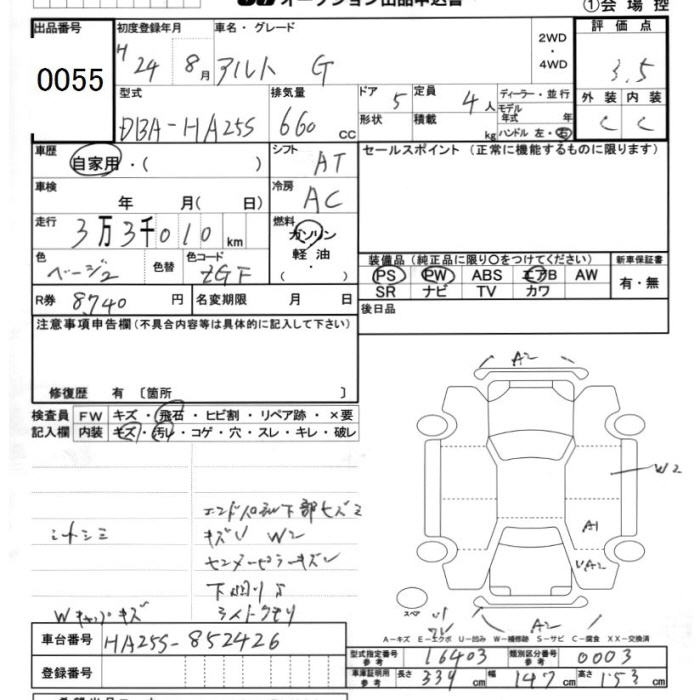 オークション出品申込書
①会場控
出品番号
0055
初度登録年月
H 24 8月
車名・グレード
アルト G
2WD
・
4WD
評価点
3.5
外装 内装
C C
型式
DBA-HA25S
排気量
660 cc
ドア 5
形状
定員 4人
積載 kg
ディーラー・並行
モデル
年式 年
ハンドル 左・右
車歴
自家用・( )
シフト
AT
セールスポイント (正常に機能するものに限ります)
車検
年 月( 日)
冷房
AC
走行
3万3千010 km
燃料
ガソリン
軽油
・( )
色
ベージュ
色替
色コード
ZGF
装備品(純正品に限り〇をつけてください)
PS PW ABS エアB AW
SR ナビ TV カワ
新車保証書
有・無
R券 8,740 円
名変期限 月 日
後日品
注意事項申告欄(不具合内容等は具体的に記入して下さい)
修復歴 有 〔箇所 〕
検査員 FW キズ・飛石・ヒビ割・リペア跡・×要
記入欄 内装 キズ・汚レ・コゲ・穴・スレ・キレ・破レ
A2
W2
A1
UA2
シートシミ
キズU W2
センターピラーキズU
下回リサ
ライトクモリ
スペア
A2
A-キズ E-エクボ U-凹み W-補修跡 S-サビ C-腐食 XX-交換済
車台番号 HA25S-852426
登録番号
型式指定番号
参考
16403
類別区分番号
参考
0003
車庫証明用
参考
長さ 339 cm 幅 147 cm 高さ 153 cm